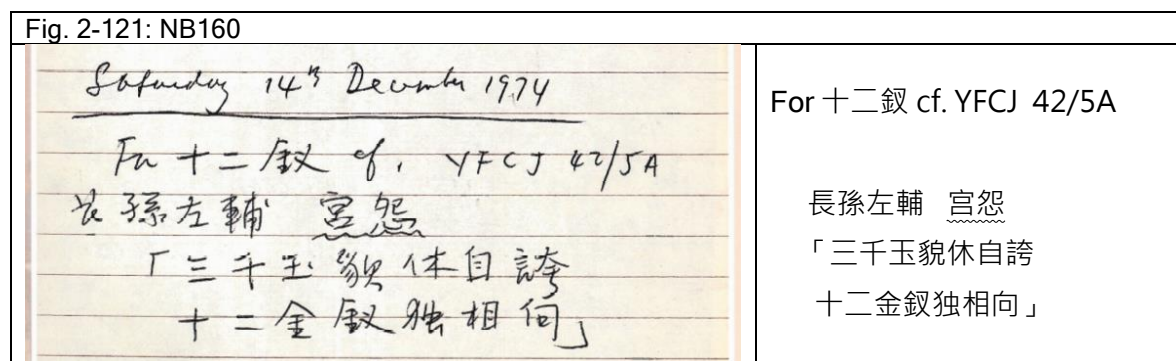 Fig. 2-121: NB160
Saturday 14th December 1974
For 十二釵 cf. YFCJ 42/5A
長孫左輔 宮怨
「三千玉貌休自誇
十二金釵独相向」
For 十二釵 cf. YFCJ 42/5A
長孫左輔 宮怨
「三千玉貌休自誇
十二金釵独相向」